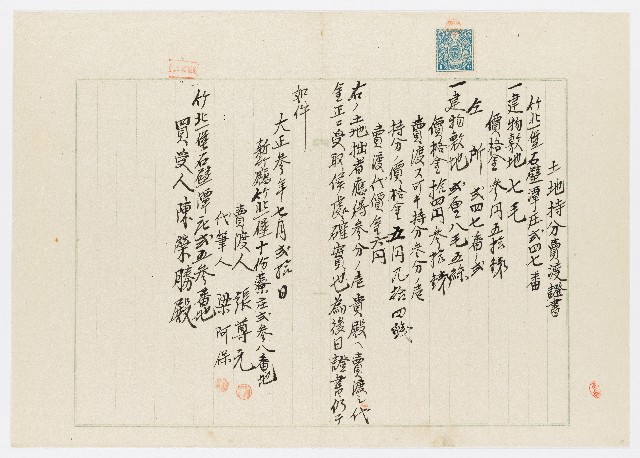 土地持分賣渡證書
竹北堡石壁潭庄貳四七番
一建物敷地 七毛
價格金参円五拾錢
仝所 貳四七番ノ貳
一建物敷地 貳厘八毛五絲
價格金拾四円参拾錢
賣渡ス可キ持分参分ノ壱
持分ノ價格金五円九拾四錢
賣渡代價金六円
右ノ土地拙者應得参分ノ壱貴殿ヘ賣渡シ代
金正ニ受取候處確實也為後日證書仍テ
如件
大正参年七月貳拾日
新竹廳竹北堡十份藔庄貳参八番地
賣渡人 張尊元
代筆人 梁阿保
竹北堡石壁潭庄貳五参番地
買受人 陳榮勝殿